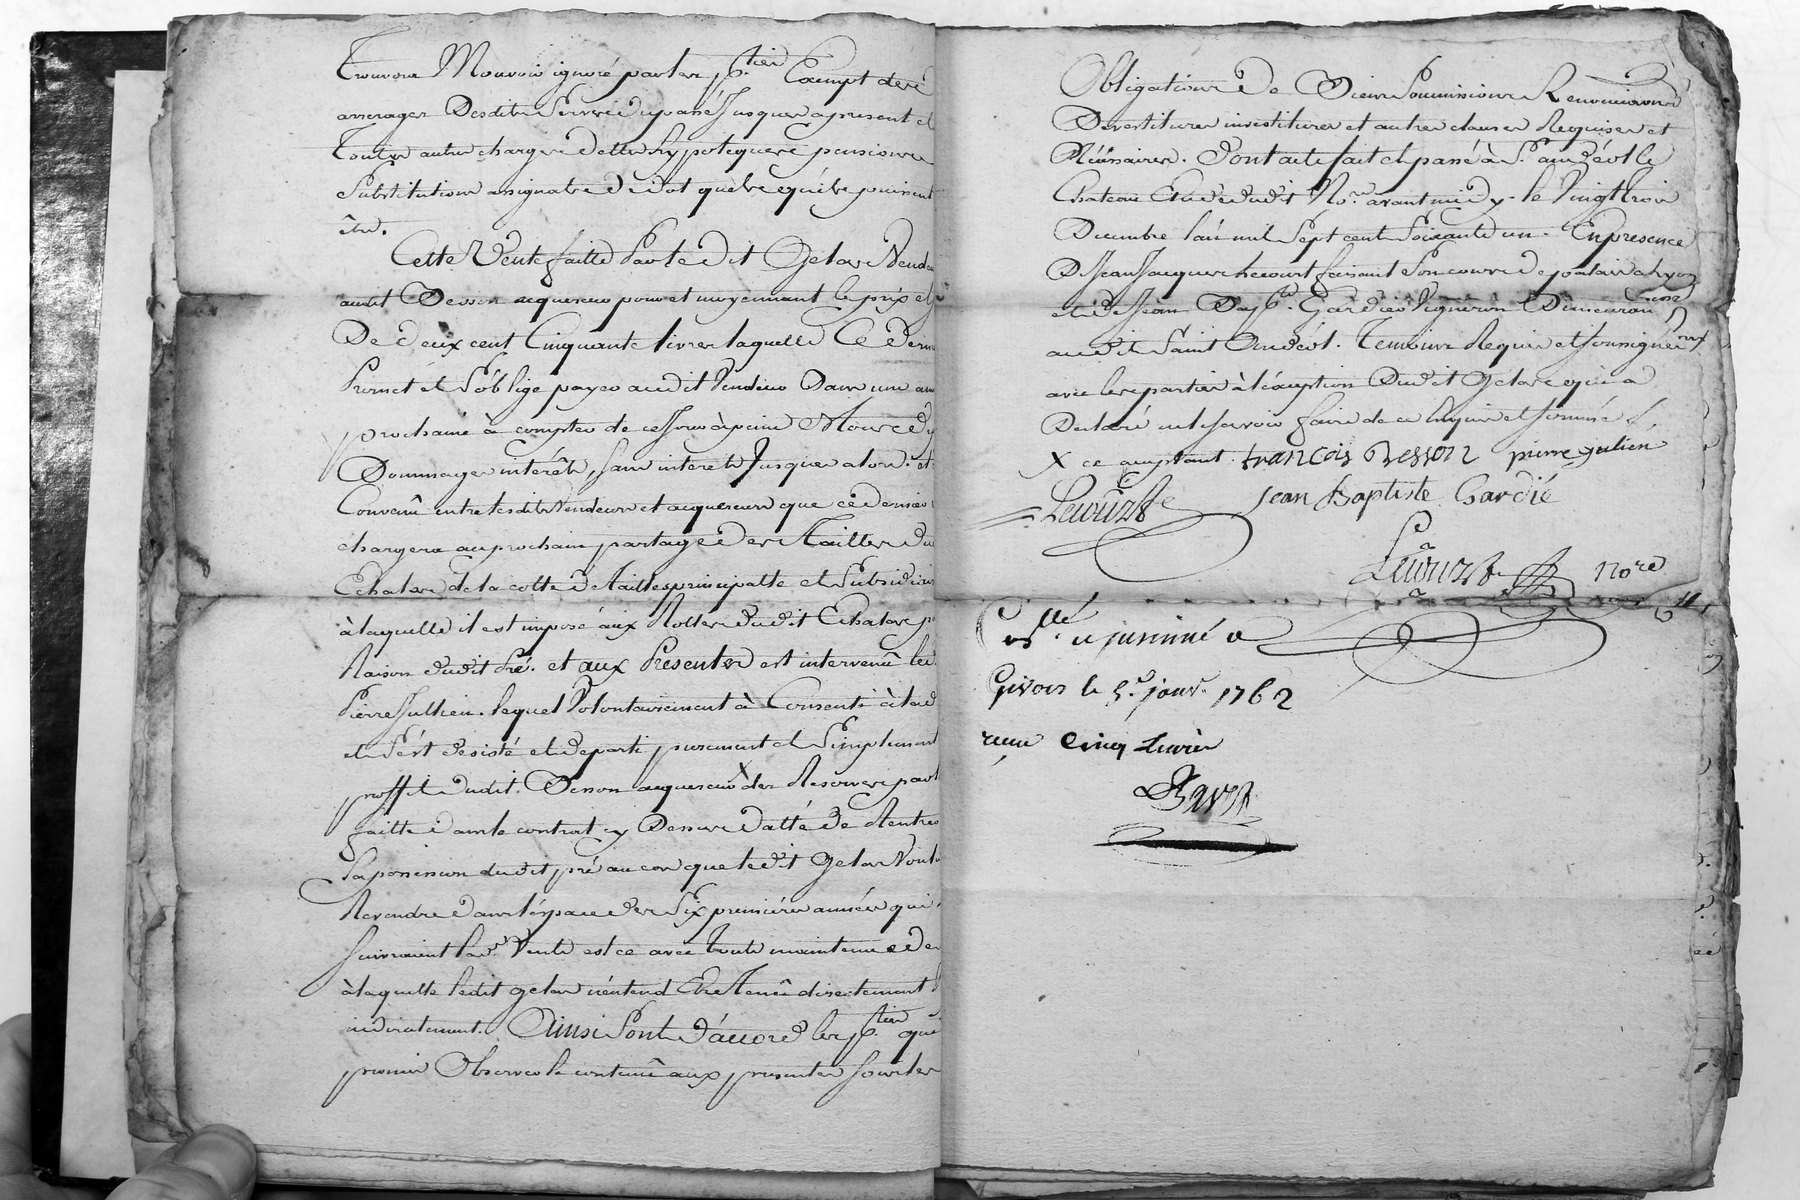 Trouver Mouvoir ignoré par les p.ties Exempt de
arrerages Desdits Servis du passé Jusques apresent et
Toutes autres charges dettes hypoteques pensions
Substitutions assignats de dot quels qu'ils puissent
être.
Cette Vente faitte Par le Dit Gelas Vendeur
audit Besson acquereur pour et moyennant le prix et
De deux cent Cinquante livres laquelle Ce dernier
Promet et S'oblige payer audit Vendeur Dans une
prochaine à compter de ce Jour à peine
Dommages intérêts, sans interets Jusques alors. et
Convenû entre lesdits Vendeurs et acquereurs que ce dernier
chargera au prochain partage des Tailles du
Echalas de la cotte de Tailles principalle et Subsidiaire
à laquelle il est imposé aux Rolles dudit Echalas
Raison dudit Pré. et aux Presentes est intervenû
Pierre Jullien. lequel Volontairement à Consenti à
et s'est desisté et departi purement et Simplement
proffit dudit Besson acquereur X des Reserves par
faitte dans le contrat cy Dessus datté De Rentrer
La possession dudit pré au cas que ledit Gelas Voulu
Revendre dans l'éspace des Six premières années qui
suivroient la ditte Vente est ce avec Toute maintenue de
à laquelle ledit gelas n'entend Etre Tenû directement
indirectement. Ainsi Sont d'accord les p.ties
promis Observer le contenû aux presentes sous les
Obligations De Biens Soumissions Renonciations
Devestitures investitures et autres clauses Requises et
Nécéssaires. Dont acte fait et passé à S.t andéol le
Chateau Etude dudit No.re avant midy. le Vingt trois
Decembre l'an mil Sept cent Soixante un. En presence
D Jean Jacques Lecourt faisant Son cours de palais a Lyon
et de Jean Bap.te Gardies Vigneron Demeurant
audit Saint Andéol. Temoins Requis et soussignés
avec les parties à l'éxeption Dudit Gelas qui a
Declaré ne sçavoir faire de ce Enquis et sommé
X ce acceptant. francois Besson pierre julien
Lecourt Jean Baptiste Gardié
Lecourt No.re
Con.lle et insinué a
Givors le 5.e janv. 1762
reçu Cinq Livres